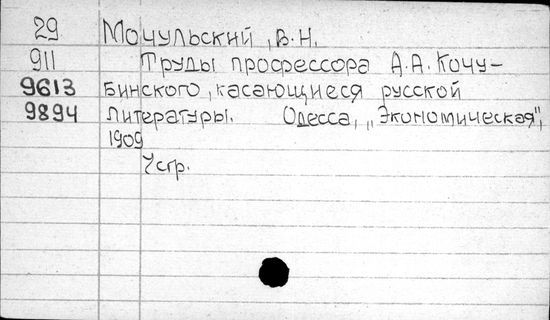 29 Мочульский, В.Н.
911 Труды профессора А.А. Кочу-
9613 бинского, касающиеся русской
9894 литературы. Одесса, „Экономическая",
1909
7 стр.